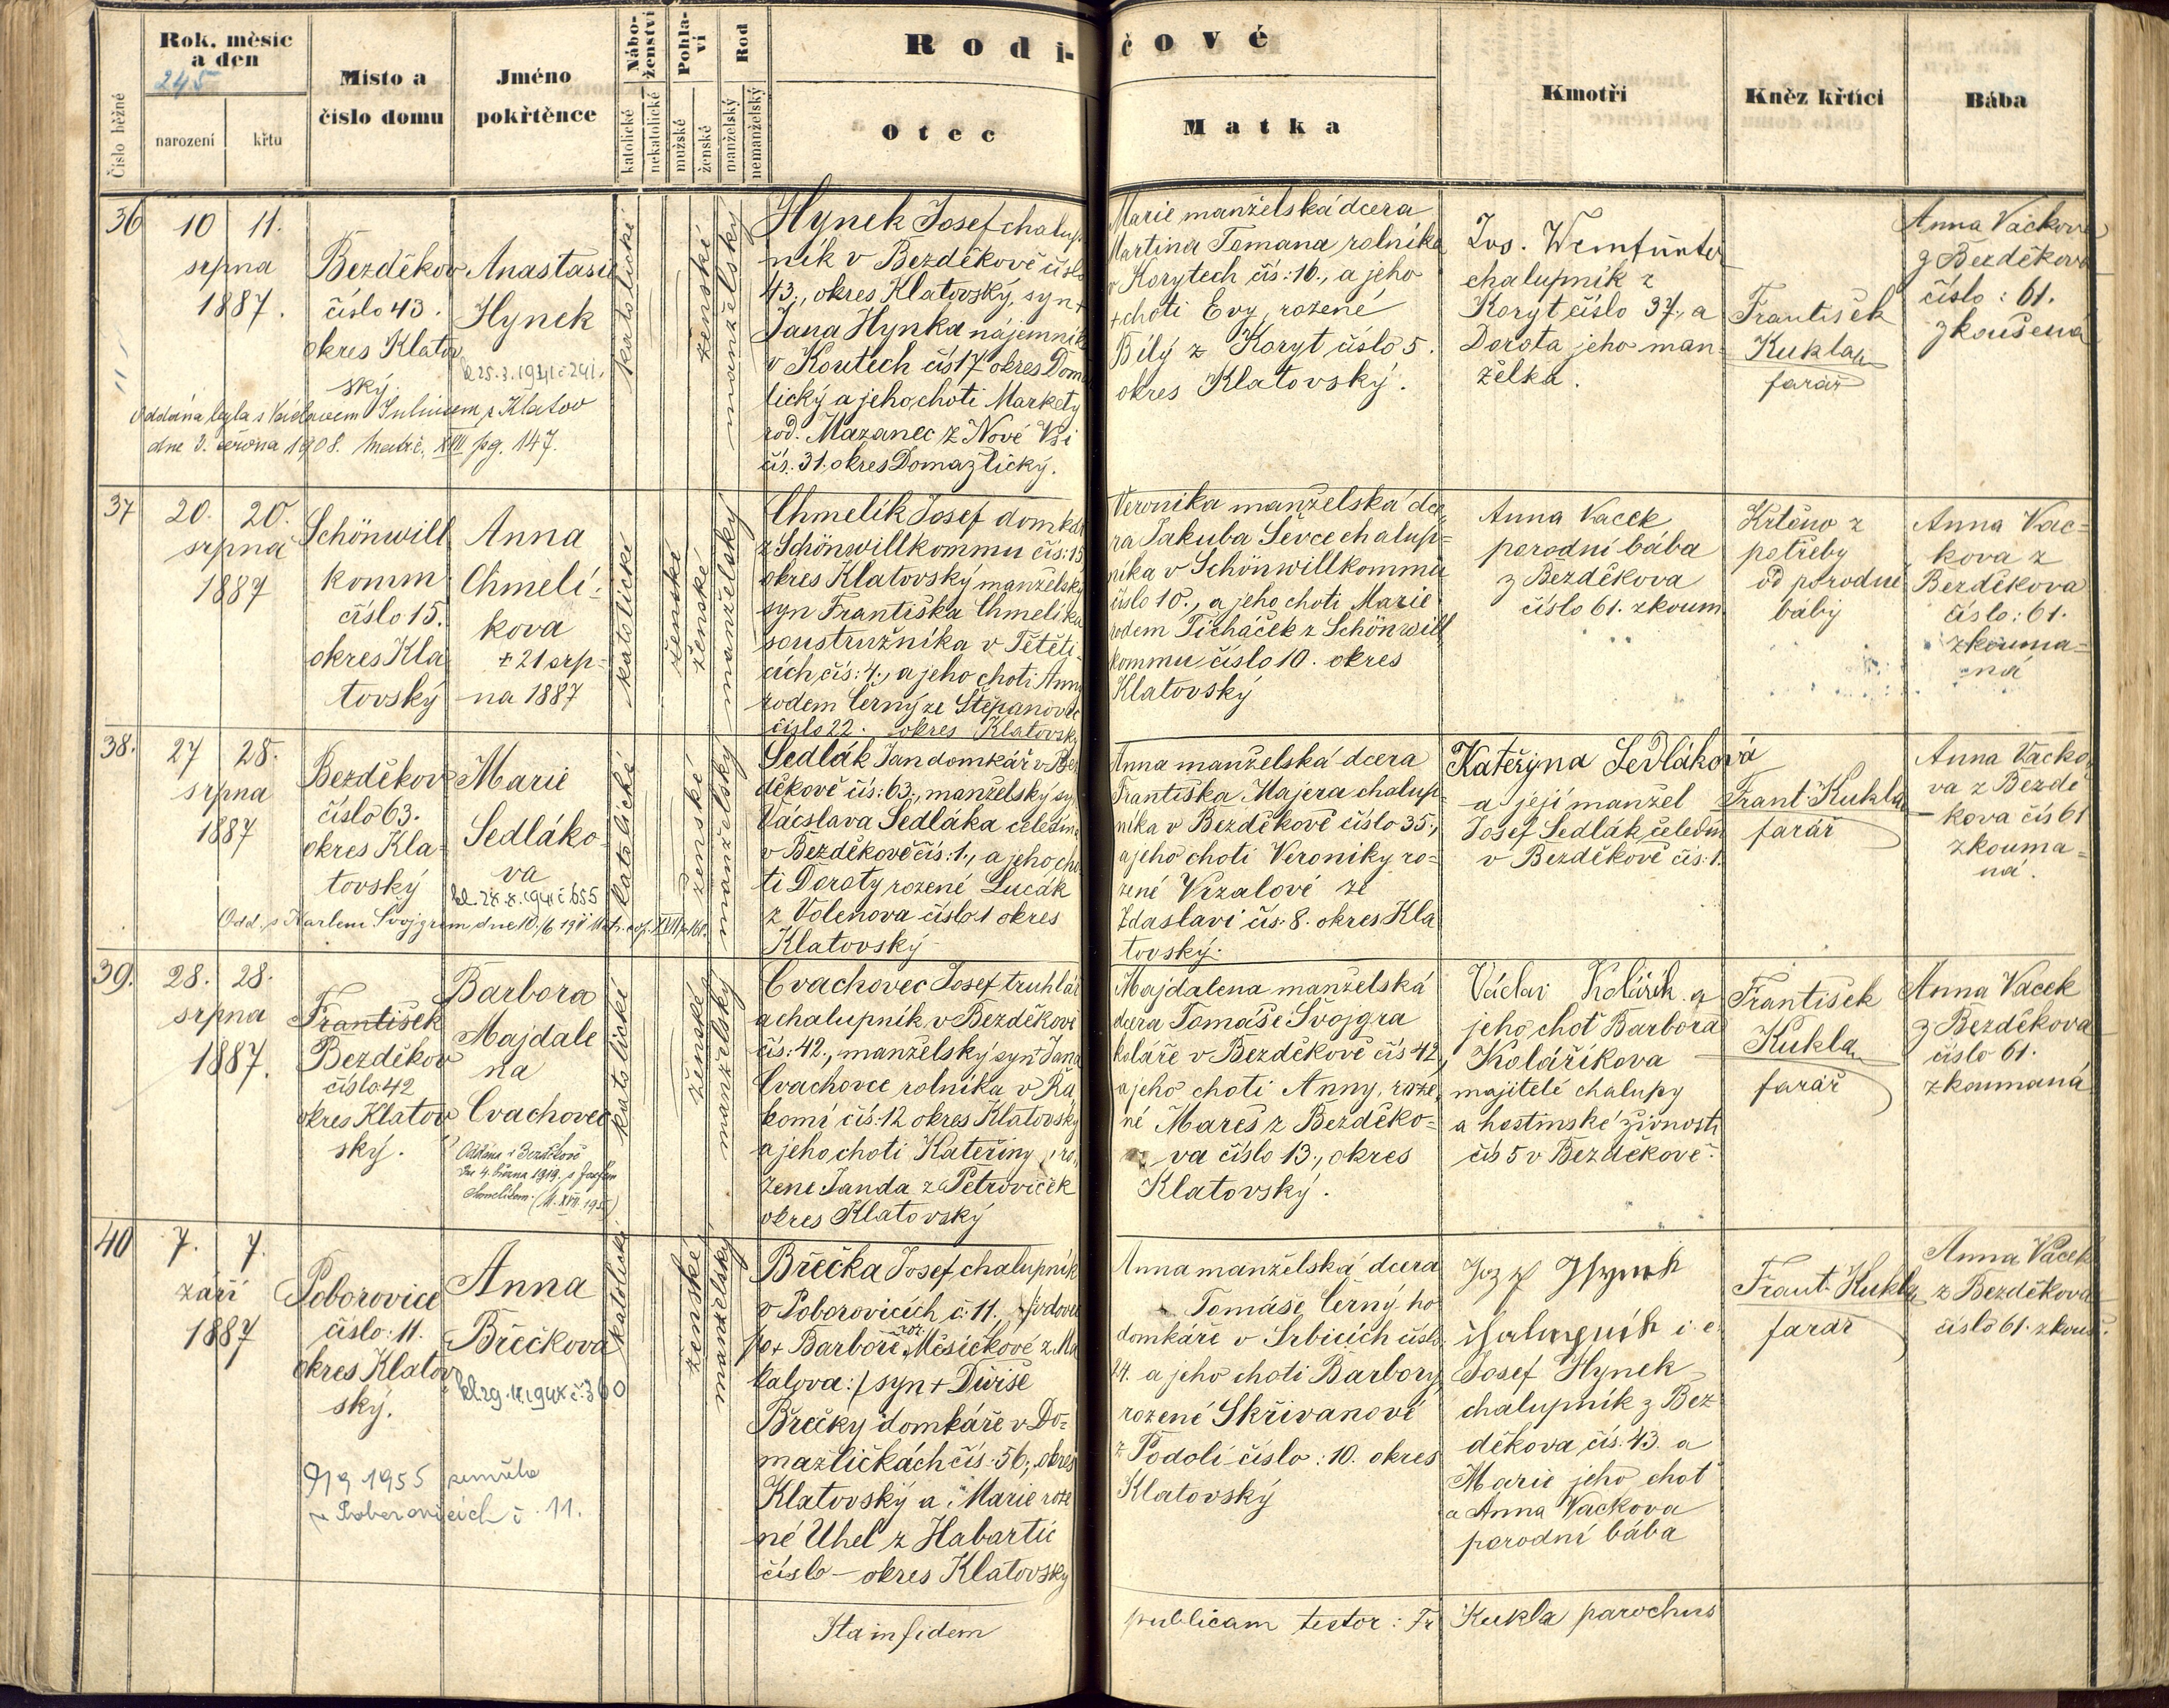 Rok, měsíc
a den
245
narození
křtu
Číslo běžné
Místo a
číslo domu
Jméno
pokřtěnce
Nábo-
ženství
katolické
nekatolické
Pohla-
ví
mužské
ženské
Rod
manželský
nemanželský
Rodi-
čové
Otec
Matka
Kmotři
Kněz křtící
Bába
36
10 11.
srpna
1887.
Bezděkov
číslo 43.
okres Klatov
ský.
Anastasie
Hynek
katolické
ženské
manželský
Oddána byla s Václavem z Klatov
dne 3. června 1908. XVII pg. 147.
Hynek Josef chalup
ník v Bezděkově číslo
43., okres Klatovský, syn +
Jana Hynka nájemník
v Koutech čís 17 okres Doma
žlický a jeho choti Markety
rod. Mazanec z Nové Vsi
čís. 31. okres Domazlický.
Marie manželská dcera
Martina Tomana rolníka
v Korytech čís: 16., a jeho
+ choti Evy, rozené
Bílý z Koryt číslo 5.
okres Klatovský.
Jos.
chalupník z
Koryt číslo 37., a
Dorota jeho man-
želka.
František
Kukla
farář
Anna Vackova
z Bezděkova
číslo: 61.
zkoušená
37
20. 20.
srpna
1887
Schönwill
komm
číslo 15.
okres Kla
tovský
Anna
Chmelí-
kova
+ 21 srp-
na 1887
katolické
ženské
ženské
manželský
Chmelík Josef domkář
z Schönwillkommu čís: 15
okres Klatovský manželský
syn Františka Chmelíka
soustružníka v Tětěti-
cích, čís: 4., a jeho choti Anny
rodem Černý ze Štěpanovic
číslo 22. okres Klatovský
Veronika manželská dce-
ra Jakuba Ševce chalup-
níka v Schönwillkommu
číslo 10., a jeho choti Marie
rodem Ticháček z Schönwill
kommu číslo 10. okres
Klatovský
Anna Vacek
porodní bába
z Bezděkova
číslo 61. zkoum.
Krtěno z
potřeby
od porodné
báby
Anna Vac-
kova z
Bezděkova
číslo: 61.
zkouma-
ná
38.
27 28.
srpna
1887
Bezděkov
číslo 63.
okres Kla-
tovský
Marie
Sedláko-
va
katolické
ženské
manželský
Odd. s Karlem Svojgrem dne 10./6 191
Sedlák Jan domkář v Bez
děkově čís: 63., manželský syn
Václava Sedláka čeledína
v Bezděkově čís: 1., a jeho cho-
ti Doroty rozené Lucák
z Volenova číslo 1 okres
Klatovský
Anna manželská dcera
Františka Majera chalup-
níka v Bezděkově číslo 35.,
a jeho choti Veroniky ro-
zené Vrzalové ze
Zdaslavi čís. 8. okres Kla
tovský.
Kateřyna Sedláková
a její manžel
Josef Sedlák čeledín
v Bezděkově čís: 1.
Frant Kukla
farář
Anna Vacko-
va z Bezdě
kova čís 61
zkouma-
ná.
39.
28. 28.
srpna
1887.
František
Bezděkov
číslo: 42
okres Klatov
ský.
Barbora
Majdale
na
Cvachovec
Oddána v Bezděkově
dne 4. března 1919. s Josefem
Chmelíkem. (M. XVII. 195)
katolické
ženské
manželský
Cvachovec Josef truhlář
a chalupník v Bezděkově
čís: 42., manželský syn + Jana
Cvachovce rolníka v Řá
komí čís: 12 okres Klatovský
a jeho choti Kateřiny, ro-
zene Janda z Petroviček
okres Klatovský
Majdalena manželská
dcera Tomáše Svojgra
koláře v Bezděkově čís 42,
a jeho choti Anny, roze-
né Mareš z Bezděko-
va číslo 13., okres
Klatovský.
Václav Kolářík a
jeho choť Barbora
Kolaříkova
majitelé chalupy
a hostinské živnosti
čís 5 v Bezděkově.
František
Kukla
farář
Anna Vacek
z Bezděkova
číslo 61.
zkoumaná
40
7. 7.
září
1887
Poborovice
číslo: 11.
okres Klatov
ský.
Anna
Břečkova
katolické
ženské
manželský
9/9 1955 zemřela
v Poborovicích č. 11.
Břečka Josef, chalupník
v Poborovicích č. 11.
po + Barboře roz. Měsíčkové z Ma
kalova:/ syn + Diviše
Břečky domkáře v Do-
mažličkách čís. 56., okres
Klatovský a Marie roze
né Uhel z Habartic
číslo — okres Klatovský
Anna manželská dcera
Tomáše Černý ho
domkáře v Srbicích číslo
14. a jeho choti Barbory
rozené Skřivanové
z Podolí číslo: 10. okres
Klatovský
Jozef Hynek
chalupník i. e.
Josef Hynek
chalupník z Bez
děkova, čís. 43. a
Marie jeho choť
a Anna Vackova
porodní bába
Frant. Kukla
farář
Anna Vacek
z Bezděkova
číslo 61. zkouš.
Ita in fidem
publicam testor: Fr Kukla parochus